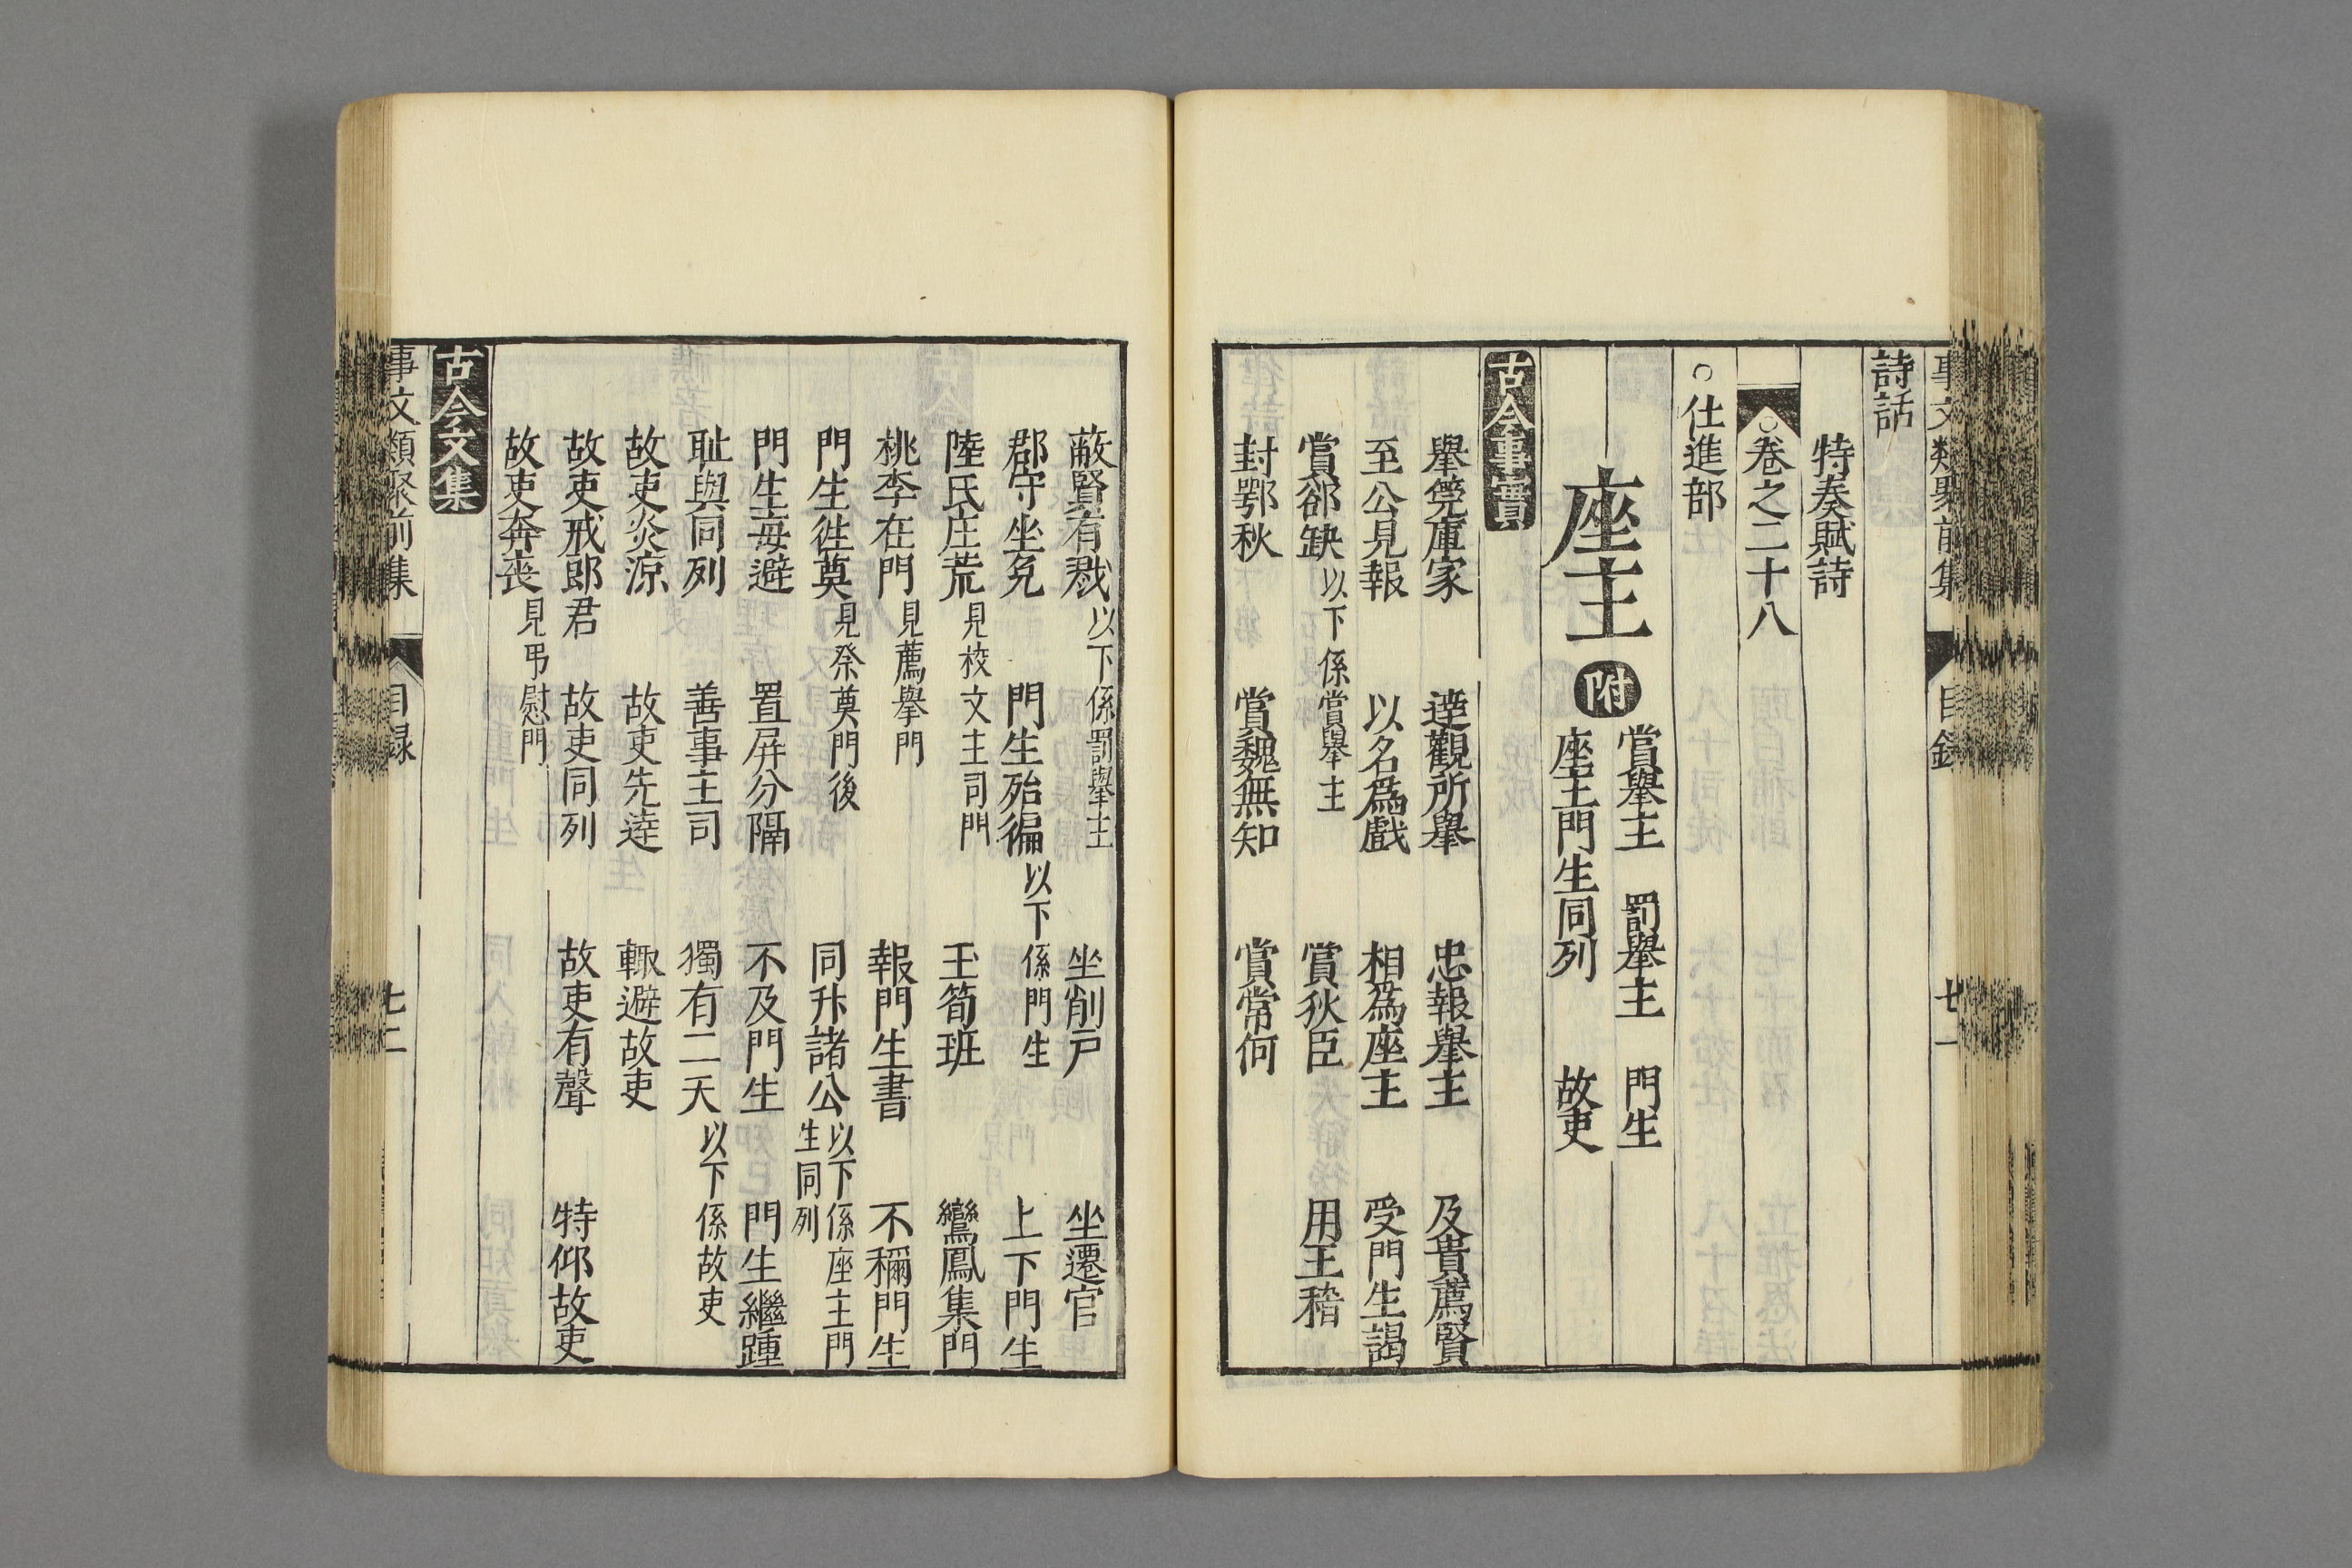 事文類聚前集 目錄 七一
詩話
特奏賦詩
○卷之二十八
○仕進部
座主 附 賞舉主 罰舉主 門生
座主門生同列 故吏
古今事實
舉筦庫家 達觀所舉 忠報舉主 及貴薦賢
至公見報 以名爲戲 相爲座主 受門生謁
賞郤缺 以下係賞舉主 賞狄臣 用王稽
封鄂秋 賞魏無知 賞常何
蔽賢有戮 以下係罰舉主 坐削戸 坐遷官
郡守坐免 門生殆徧 以下係門生 上下門生
陸氏庄荒 見校文主司門 玉筍班 鸞鳳集門
桃李在門 見薦舉門 報門生書 不稱門生
門生徃奠 見祭奠門後 同升諸公 以下係座主門生同列
門生毎避 置屏分隔 不及門生 門生繼踵
耻與同列 善事主司 獨有二天 以下係故吏
故吏炎凉 故吏先達 輙避故吏
故吏戒郎君 故吏同列 故吏有聲 特仰故吏
故吏奔喪 見弔慰門
古今文集
事文類聚前集 目録 七二